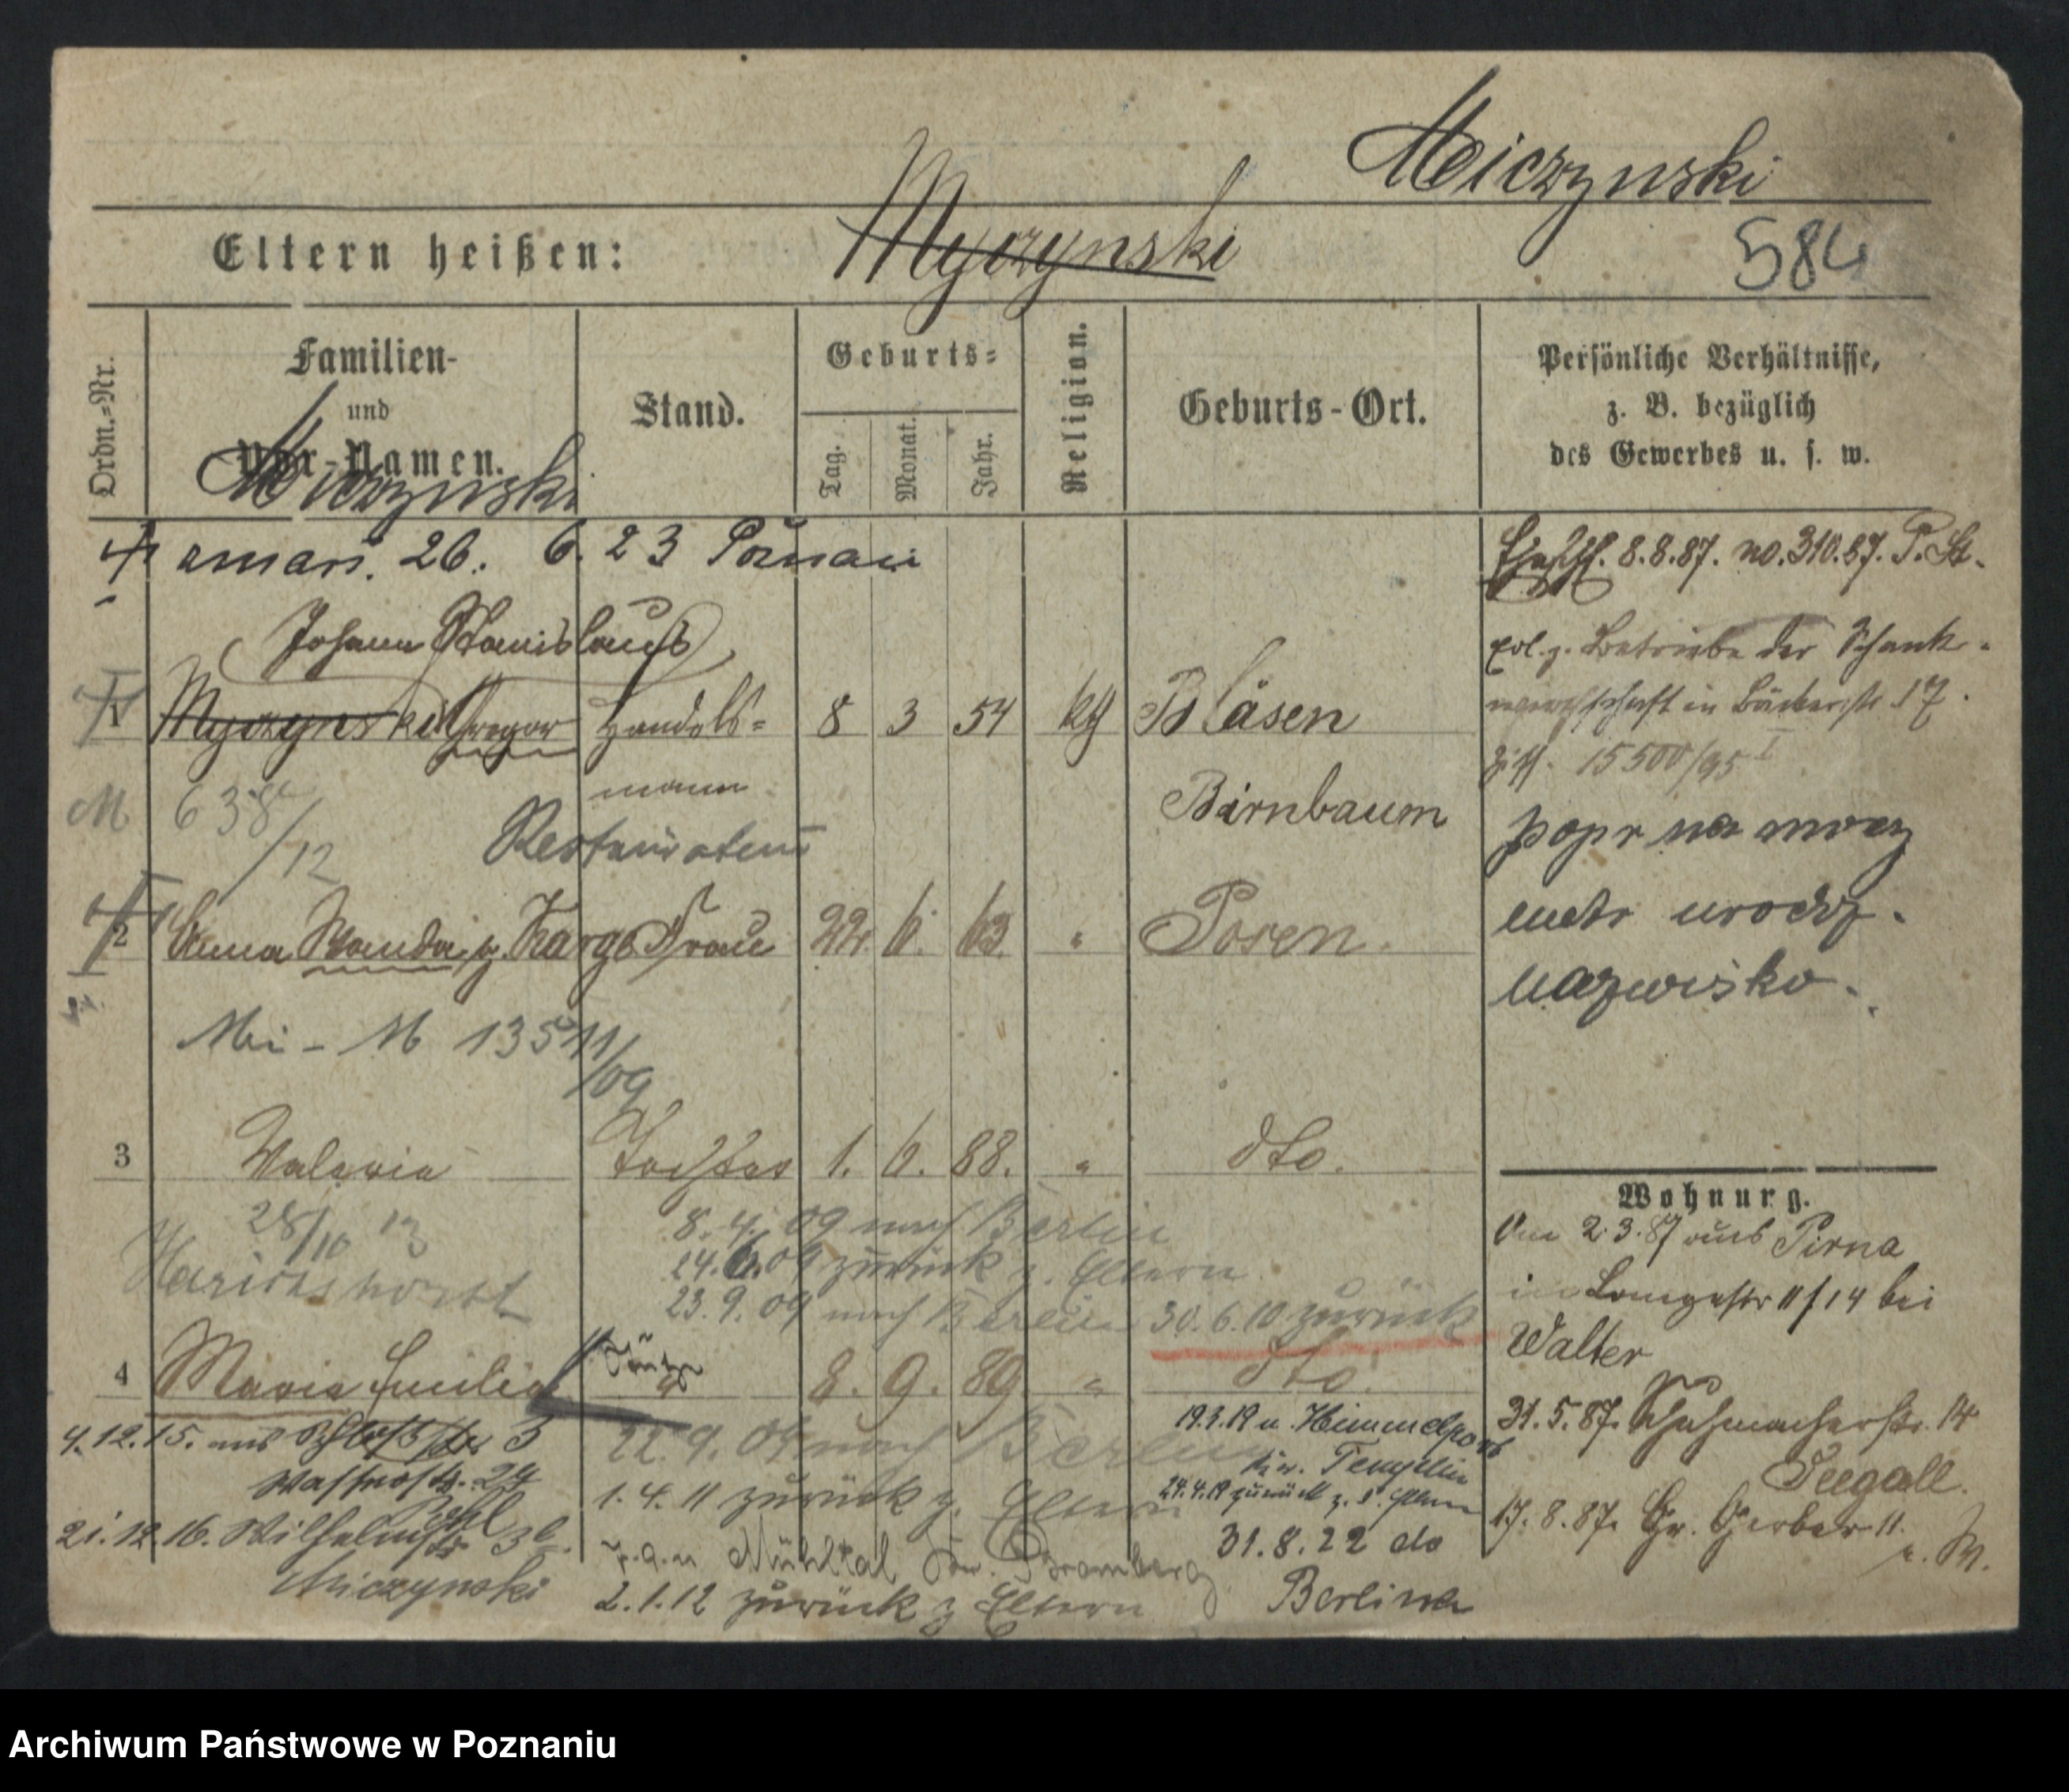 Miczynski
Eltern heißen: Myczynski
584
Ordn.-Nr.
Familien-
und
Vor-Namen.
Stand.
Geburts-
Tag.
Monat.
Jahr.
Religion.
Geburts-Ort.
Persönliche Verhältnisse,
z. B. bezüglich
des Gewerbes u. s. w.
Miczynski
26. 6. 23 Poznań
8.8.87. no. 310.87. P. St.
Johann Stanislaus
z. Betriebe der Schank-
wirthschaft in Bäckerstr 17.
15500/95 I
1 Myczynski Gregor Handels- 8 3 54 kth Bläsen
mann
Birnbaum
M 638/12
Restaurateur
popr na mocy
metr urodz.
nazwisko.
2 Anna Wanda g. Karge Frau 22. 6. 63. " Posen.
Mi - M 13511/09
3 Valeria Tochter 1. 6. 88. " dto.
28/10 13
8. 4. 09 nach Berlin
24. 6. 09 zurück z. Eltern
23. 9. 09 nach Berlin 30.6.10 zurück
4 Maria Emilie 8. 9. 89. " dto.
4.12.15. aus 3
22. 9. 09 nach Berlin
1. 4. 11 zurück z. Eltern
Mühltal Bromberg
2.1.12 zurück z Eltern
Wasserstr. 24
21.12.16. Wilhelmstr
Miczynski
19.3.19 n. Himmelport
Templin
24.4.19 zurück z. d. Eltern
31.8.22 do
Berlina
Wohnung.
Am 2.3.87 aus Pirna
in Langestr 11/14 bei
Walter
31.5.87. Schuhmacherstr. 14
Seegall.
17.8.87. Gr. Gerber 11.
Archiwum Państwowe w Poznaniu